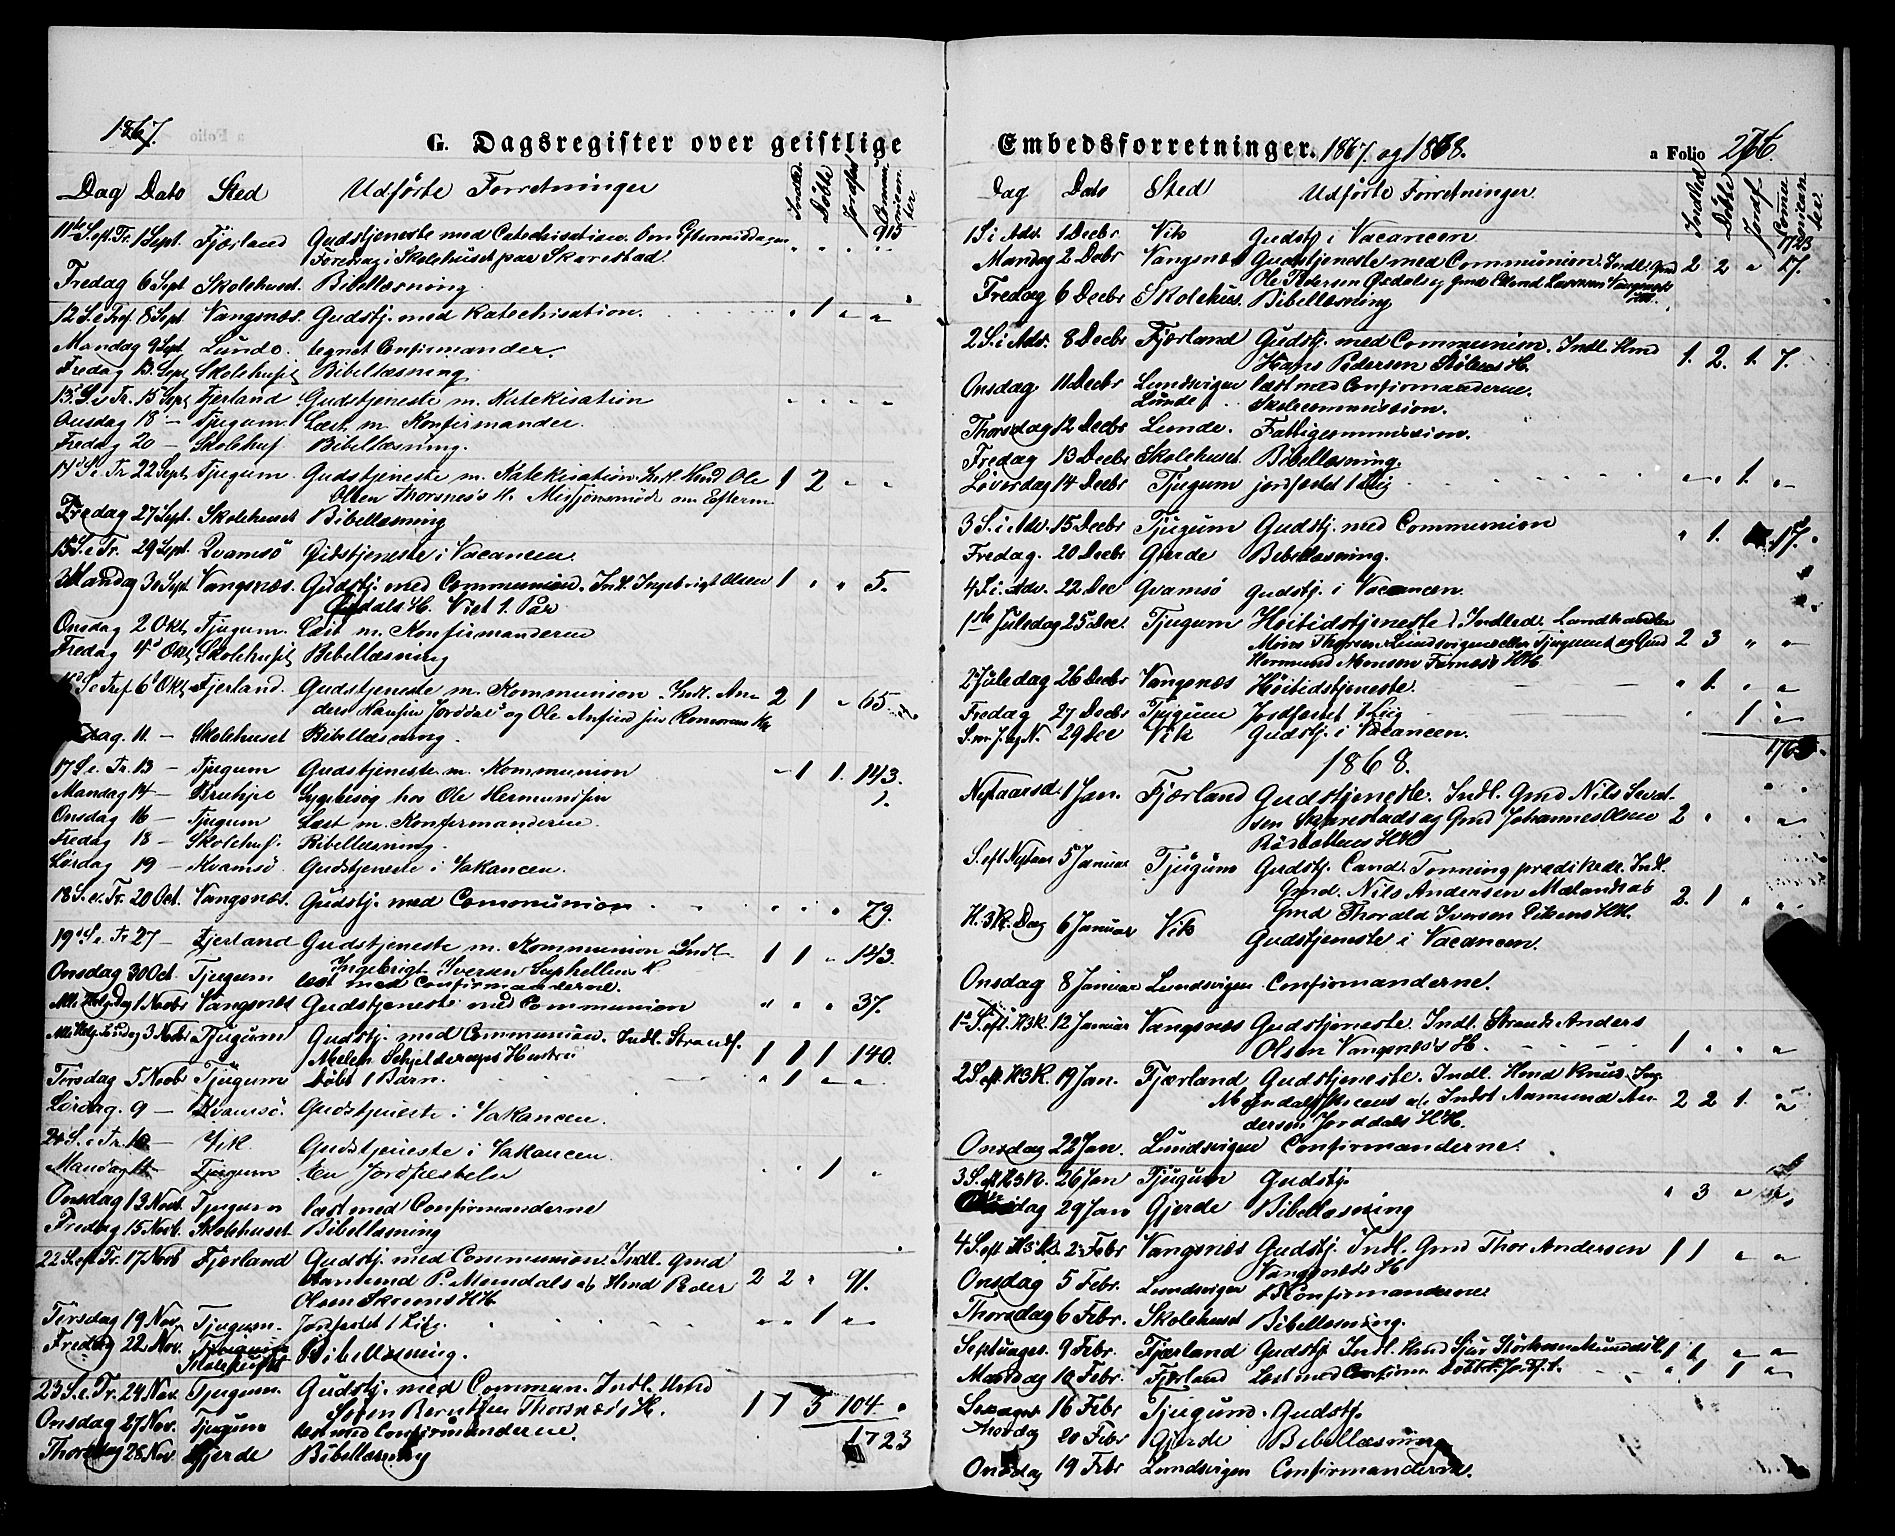 1867.
G. Dagsregister over geistlige
Dag Dato Sted Udförte Forretninger Indled. Döbte Jordfæst Communicanter
915
11te S. eft. Tr. 1 Sept. Fjærland Gudstjeneste med Catechisation. Om Eftermiddagen " " " "
Foredrag i Skolehuset paa Skarestad.
Fredag 6 Sept Skolehuset Bibellæsning.
12 S. e Tref 8 Sept. Vangsnæs. Gudstj. med Katechisation. " 1 " "
Mandag 9 Sept. Lunde. tegnet Confirmander.
Fredag 13. Sept Skolehuset Bibellæsning.
13d S. e Tr. 15 Sept Fjerland Gudstjeneste m. Katekisation " " " "
Onsdag 18 — Tjugum Læst m. Konfirmander.
Fredag 20 — Skolehus Bibellæsning.
14d S. e. Tr 22 Sept. Tjugum. Gudstjeneste m. Katekisation. Indl. Hmd Ole 1 2 " "
Olsen Thorsnes's H. Missjonsmöde om Efterm
Fredag 27 Sept. Skolehuset Bibellæsning
15 S. e Tr. 29 Sept. Qvamsö Gudstjeneste i Vacancen.
Mandag 30 Sept. Vangsnæs. Gudstj. med Communion. Indl. Ingebrigt Olsen 1 " " 5.
H. Viet 1. Par
Onsdag 2 Okt. Tjugum. Læst m. Konfirmanderne
Fredag 4d Okt Skolehuset Bibellæsning
S. e Tref 6d Okt. Fjerland. Gudstjeneste m. Kommunion. Indl. An- 2 1 " 65.
ders Hansen Jorddals og Ole
11. — Skolehuset Bibellæsning.
17 S. e. Tr. 13 — Tjugum Gudstjeneste m. Kommunion " 1 1. 143.
Mandag 14 — Sygebesög hos Ole Hermundsen 1.
Onsdag 16 — Tjugum Læst m. Konfirmanderne.
Fredag 18 — Skolehus. Bibellæsning.
Lördag 19 — Kvamsö. Gudstjeneste i Vakancen.
18 S. e. Tr. 20 Oct. Vangsnæs. Gudstj. med Communion " " " 79.
19d S. e. Tr 27 — Fjerland Gudstjeneste m. Kommunion Indl. 1 1 " 143.
Ingebrigt Iversen Suphellens H.
Onsdag 30 Oct. Tjugum læst med Confirmanderne.
Alle Helg. Dag 1 Novbr Vangsnæs Gudstjeneste med Communion " " " 37.
3 Novbr Tjugum Gudstj. med Communion. Indl. Strands. 1 1 1 140.
Hustru
Torsdag 5 Novb Tjugum Döbt 1 Barn. " 1 " "
Lördag. 9 — Kvamsö. Gudstjeneste i Vakancen.
S. e Tr. 10 — Vik. Gudstjeneste i Vakancen.
Mandag 11 — Tjugum En Jordfæstelse " " 1 "
Onsdag 13 Novb. Tjugum læst med Confirmanderne
Fredag 15 Novb. Skolehuset Bibellæsning
22 S. eft Tr. 17 Novb Fjærland Gudstj. med Communion. Indl. Gmd
P. Hmd Peder 2 2 " 91.
Olsen Skreens HH
Torsdag 19 Nov. Tjugum. Jordfæstet 1 Liig. " " 1 "
Fredag 22 Nov. Bibellæsning.
Skolehuset
23 S. e. Tr. 24 Nov. Tjugum. Gudstj. med Commun. Indl. Hmd 1 1 5 104.
Thorsnæs's H.
Onsdag 27 Nov. Tjugum læst med Confirmanderne.
1723
Thorsdag 28 Nov. Gjerde Bibellæsning
Embedsforretninger. 1867. og 1868. a Folio 266.
Dag Dato Sted Udförte Forretninger. Indled Döbte Jordf. Communicanter.
1723
1 S. i Adv. 1 Decbr Vik Gudstj. i Vacancen
Mandag 2 Debr Vangsnæs Gudstjeneste med Communion. Indl. Gmd 2 2 " 17.
Ole Pedersen
Fredag 6 Decbr Skolehus. Bibellæsning
2 S. i Adv. 8 Decbr Fjærland Gudstj. med Communion. Indl. Hmd 1. 2. 1. 7.
Hans Pedersen Stölens H.
Onsdag 11 Decbr Lundsvigen læst med Confirmanderne.
Lunde Skolecommission.
Thorsdag 12 Decbr Lunde. Fattigcommission.
Fredag 13 Decbr Skolehuset Bibellæsning.
Löverdag 14 Decbr Tjugum jordfæstet 1 Liig " " 1. "
3 S. i Adv. 15 Decbr Tjugum Gudstj. med Communion " 1. 17.
Fredag. 20 Decbr Gjerde Bibellæsning.
4 S. i Adv. 22 Dec Qvamsö Gudstj. i Vacancen.
1ste Juledag 25 Dec. Tjugum Höitidstjeneste. Indled. Landhandler
og Gmd 2 3 " "
Hermund Monsen HH.
2 Juledag 26 Decbr Vangsnæs Höitidstjeneste. " 1. " "
Fredag 27 Decbr Tjugum Jordfæstet 1 Liig " 1 "
29 Dec Vik Gudstj. i Vacancen.
1868.
Nytaarsd. 1 Jan. Fjærland Gudstjeneste. Indl. Gmd Nils Sevat-
sen Skarestads og Gmd Johannes Olsen 2 " " "
HH
S. eft. Nytaar 5 Januar Tjugum Gudstj. Cand. Tonning prædikede. Indl.
Gmd. Nils Andersen Mælands og 2. 1 " "
Gmd Thorald Iversen HH.
H. 3 K. Dag 6 Januar Vik Gudstjeneste i Vacancen.
Onsdag 8 Januar Lundsvigen Confirmanderne.
1e S. eft. H3K. 12 Januar Vangsnæs Gudstjeneste. Indl. Strands. Anders
Olsen Vangsnæs's H. 1 " " "
2 S. eft H3K. 19 Jan. Fjærland Gudstjeneste. Indl. Hmd Knud
Aamund An- 2 2 1. "
dersen Jorddals HH.
Onsdag 22 Jan. Lundsvigen Confirmanderne.
3 S. eft H3K. 26 Jan Tjugum Gudstj. " 3 "
29 Jan Gjerde Bibellæsning
4 S. eft H3K. 2 Febr Vangsnæs Gudstj. Indl. Gmd Thor Andersen 1 1 " "
Vangsnæs's H.
Onsdag 5 Febr. Lundsvigen Confirmanderne
Thorsdag 6 Febr. Skolehuset Bibellæsning.
Septuages. 9 Febr. Fjærland Gudstj. Indl. Hmd Sjur 1 1 " "
Mandag 10 Febr. Fjærland Læst med Confirm. " 1 1 "
Sexages. 16 Febr Tjugum. Gudstj.
Thorsdag 20 Febr Gjerde Bibellæsning
Onsdag 19 Febr Lundsvigen Confirmanderne.